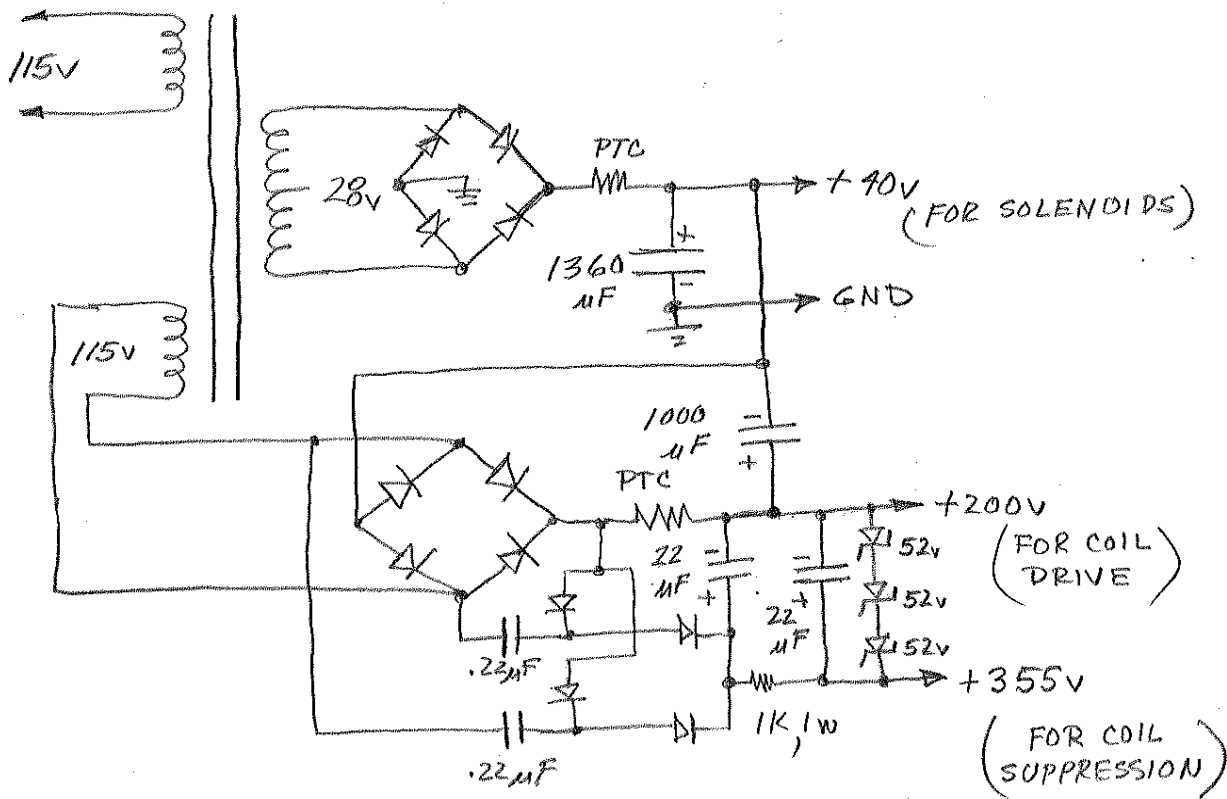 115v
28v
PTC
+40v
(FOR SOLENOIDS)
+
1360
µF
-
GND
115v
1000
µF
-
+
PTC
+200v
(FOR COIL
DRIVE)
22
µF
-
+
-
+
22
µF
52v
52v
52v
.22µF
+355v
1K, 1W
.22µF
(FOR COIL
SUPPRESSION)